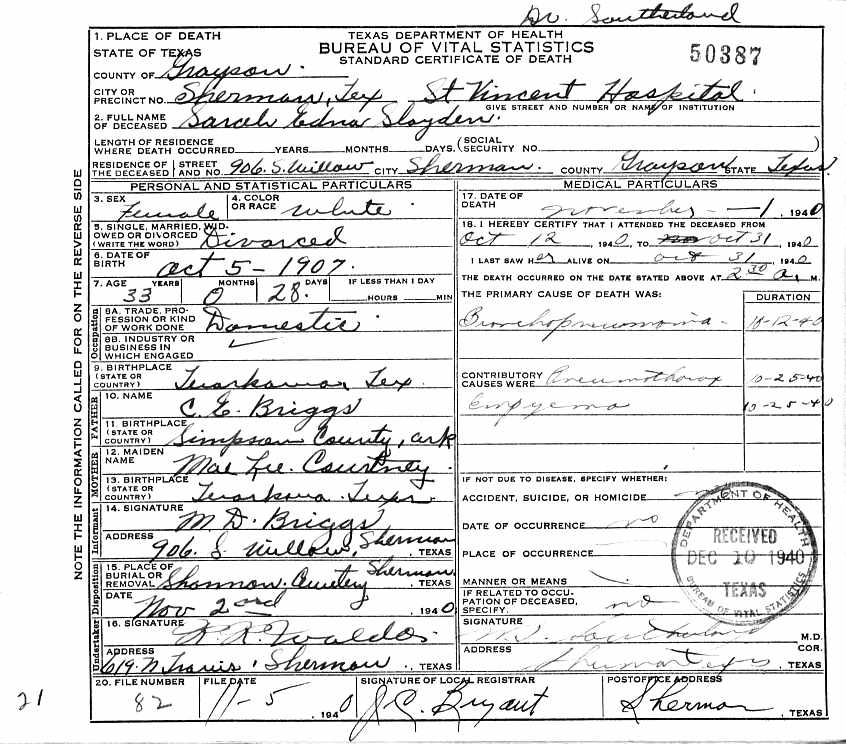 Dr. Southerland
1. PLACE OF DEATH
STATE OF TEXAS
TEXAS DEPARTMENT OF HEALTH
BUREAU OF VITAL STATISTICS
STANDARD CERTIFICATE OF DEATH
50387
COUNTY OF Grayson.
CITY OR PRECINCT NO. Sherman, Tex St Vincent Hospital.
GIVE STREET AND NUMBER OR NAME OF INSTITUTION
2. FULL NAME OF DECEASED Sarah Edna Slayden.
LENGTH OF RESIDENCE WHERE DEATH OCCURRED YEARS MONTHS DAYS. (SOCIAL SECURITY NO.
RESIDENCE OF THE DECEASED STREET AND NO. 906 S. Willow CITY Sherman. COUNTY Grayson STATE Texas
PERSONAL AND STATISTICAL PARTICULARS
3. SEX Female 4. COLOR OR RACE White
5. SINGLE, MARRIED, WIDOWED OR DIVORCED (WRITE THE WORD) Divorced
6. DATE OF BIRTH Oct 5 - 1907.
7. AGE YEARS MONTHS DAYS IF LESS THAN 1 DAY
33 0 28 HOURS MIN
Occupation
8A. TRADE, PROFESSION OR KIND OF WORK DONE Domestic
8B. INDUSTRY OR BUSINESS IN WHICH ENGAGED ✓
9. BIRTHPLACE (STATE OR COUNTRY) Texarkana, Tex.
FATHER
10. NAME C. E. Briggs
11. BIRTHPLACE (STATE OR COUNTRY) Simpson County, ark
MOTHER
12. MAIDEN NAME Mae Lee. Courtney.
13. BIRTHPLACE (STATE OR COUNTRY) Texarkana. Texas.
Informant
14. SIGNATURE M. D. Briggs
ADDRESS 906. S. Willow, Sherman TEXAS
Disposition
15. PLACE OF BURIAL OR REMOVAL Shannon. Cemetery Sherman TEXAS
DATE Nov 2nd 1940
Undertaker
16. SIGNATURE
ADDRESS 619. N Travis. Sherman TEXAS
MEDICAL PARTICULARS
17. DATE OF DEATH november - 1, 1940
18. I HEREBY CERTIFY THAT I ATTENDED THE DECEASED FROM
Oct 12, 1940, TO oct 31, 1940
I LAST SAW Her ALIVE ON oct 31 1940
THE DEATH OCCURRED ON THE DATE STATED ABOVE AT 2 30 a. M.
THE PRIMARY CAUSE OF DEATH WAS: DURATION
Bronchopneumonia - 10-12-40
CONTRIBUTORY CAUSES WERE Pneumothorax 10-25-40
empyema 10-25-40
IF NOT DUE TO DISEASE, SPECIFY WHETHER:
ACCIDENT, SUICIDE, OR HOMICIDE
DATE OF OCCURRENCE no
PLACE OF OCCURRENCE
MANNER OR MEANS
IF RELATED TO OCCUPATION OF DECEASED, SPECIFY. no
SIGNATURE Southerland M.D.
ADDRESS Sherman Texas COR. TEXAS
DEPARTMENT OF HEALTH
RECEIVED
DEC 10 1940
TEXAS
BUREAU OF VITAL STATISTICS
20. FILE NUMBER FILE DATE SIGNATURE OF LOCAL REGISTRAR POSTOFFICE ADDRESS
21 82 11-5, 1940 J. C. Bryant Sherman, TEXAS
NOTE THE INFORMATION CALLED FOR ON THE REVERSE SIDE